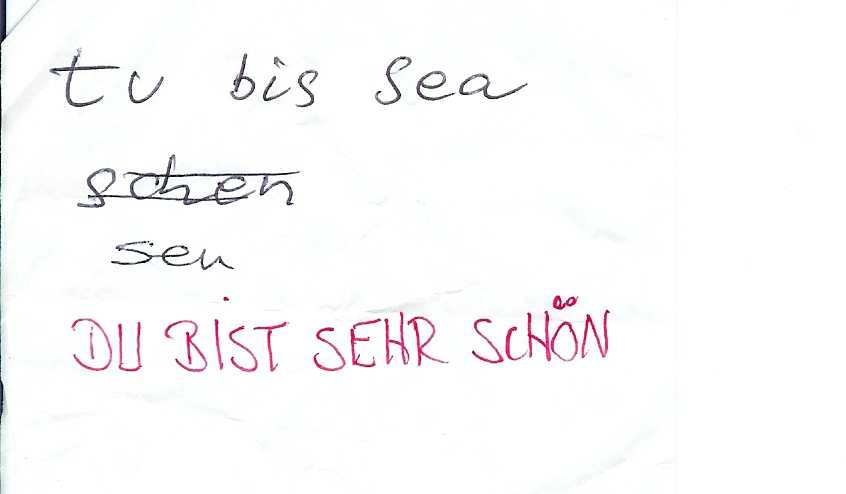 tu bis sea
schen
sen
DU BIST SEHR SCHÖN